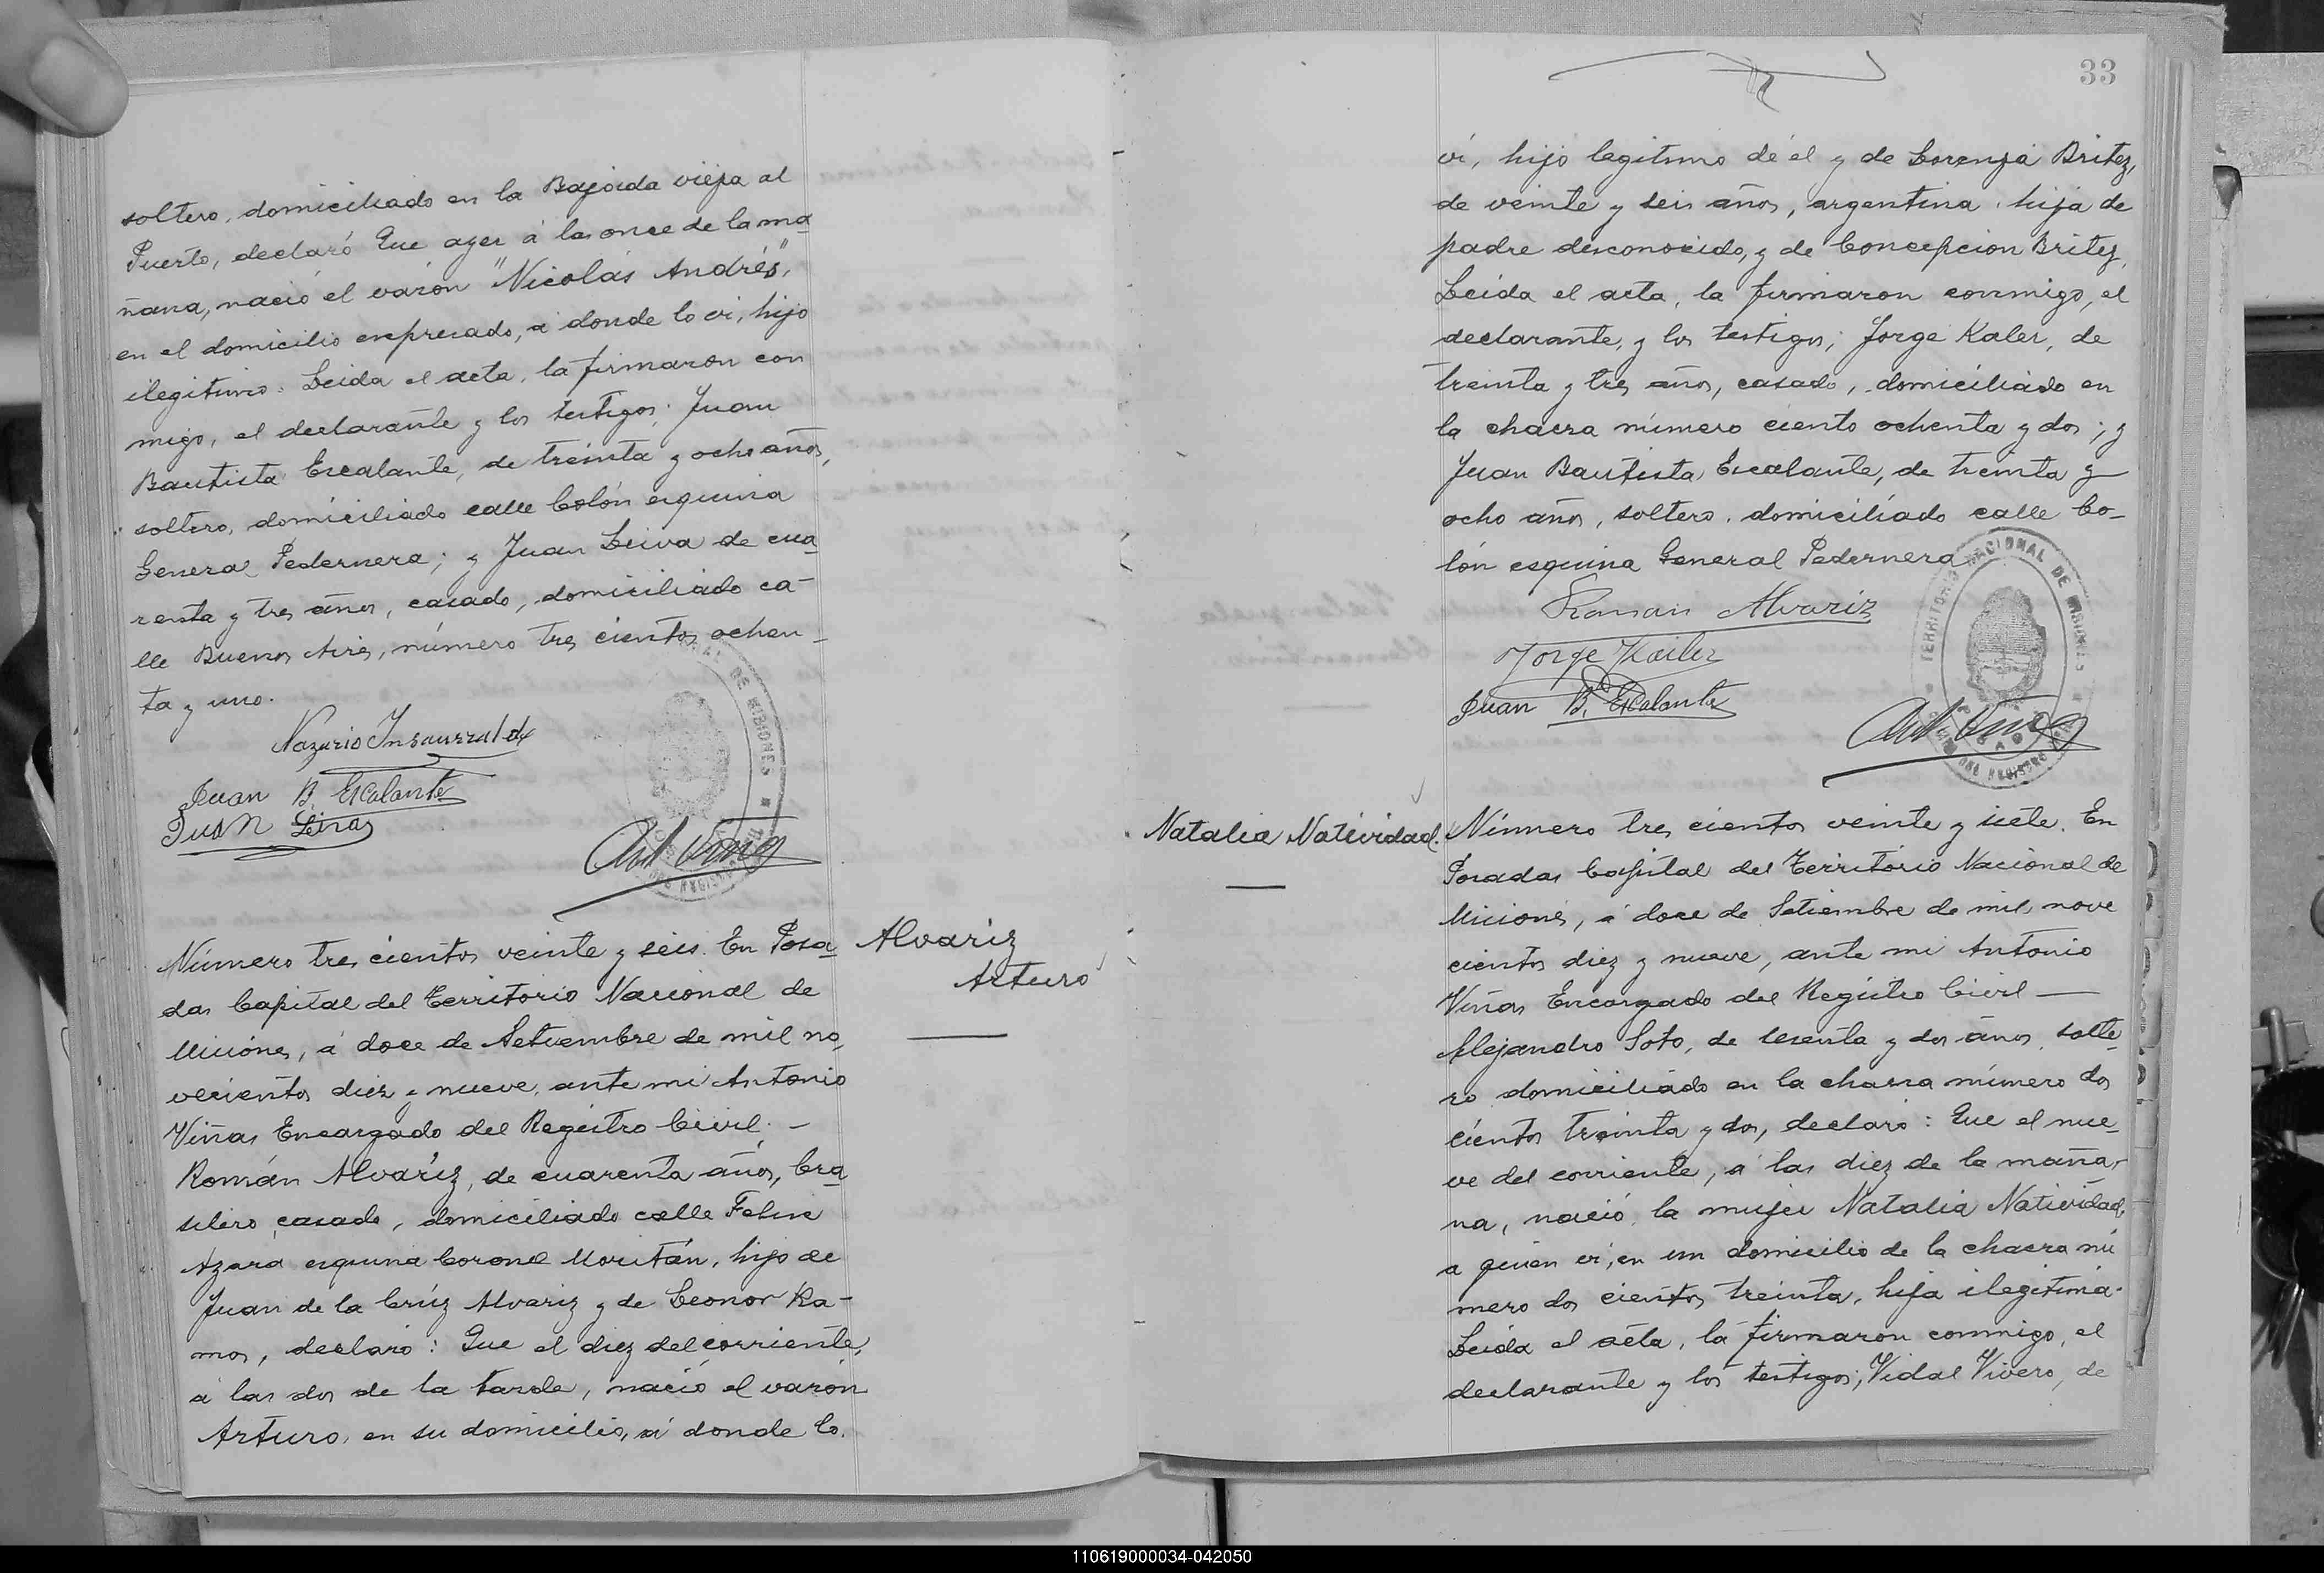 soltero, domiciliado en la Bajada vieja al
Puerto, declaró Que ayer á las once de la ma
ñana, nació el varón "Nicolás Andrés",
en el domicilio expresado, a donde lo vi, hijo
ilegitimo. Leida el acta, la firmaron con
migo, el declarante y los testigos; Juan
Bautista Escalante, de treinta y ocho años,
soltero, domiciliado calle Colón esquina
General Pedernera; y Juan Leiva de cua
renta y tres años, casado, domiciliado ca-
lle Buenos Aires, número tres cientos ochen-
ta y uno.
Nazario Insaurralde
Juan B. Escalante
Juan Leiva
Ant Viñas
Número tres cientos veinte y seis. En Posa
das Capital del Territorio Nacional de
Misiones, á doce de Setiembre de mil no
vecientos diez y nueve, ante mi Antonio
Viñas Encargado del Registro Civil. -
Román Alvariz, de cuarenta años, bra
silero, casado, domiciliado calle Felix
Azara esquina Coronel Moritán, hijo de
Juan de la Crúz Alvariz y de Leonor Ra-
mos, declaró: Que el diez del corriente,
á las dos de la tarde, nació el varón
Arturo, en su domicilio, á donde lo
Alvariz
Arturo
33
ví, hijo legitimo de él y de Lorenza Britez,
de veinte y seis años, argentina, hija de
padre desconocido, y de Concepcion Britez,
Leida el acta, la firmaron conmigo, el
declarante, y los testigos; Jorge Kaler, de
treinta y tres años, casado, domiciliado en
la chacra número ciento ochenta y dos; y
Juan Bautista Escalante, de treinta y
ocho años, soltero, domiciliado calle Co-
lón esquina General Pedernera
Roman Alvariz
Jorge Kailer
Juan B. Escalante
Ant Viñas
TERRITORIO NACIONAL DE MISIONES
Natalia Natividad.
Número tres cientos veinte y siete. En
Posadas Capital del Territorio Nacional de
Misiones, á doce de Setiembre de mil nove
cientos diez y nueve, ante mi Antonio
Viñas Encargado del Registro Civil —
Alejandro Soto, de sesenta y dos años, solte
ro domiciliado en la chacra número dos
cientos treinta y dos, declaró: Que el nue
ve del corriente, á las diez de la maña-
na, nació, la mujer Natalia Natividad,
a quien vi, en un domicilio de la chacra nú
mero dos cientos treinta, hija ilegitima.
Leida el acta, la firmaron conmigo, el
declarante y los testigos; Vidal Vivero, de
110619000034-042050